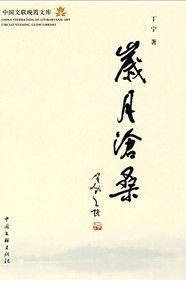 中国文联晚霞文库
CHINA FEDERATION OF LITERARY AND ART
CIRCLES' EVENING GLOW LIBRARY
丁宁 著
歲月滄桑
中国文联出版社